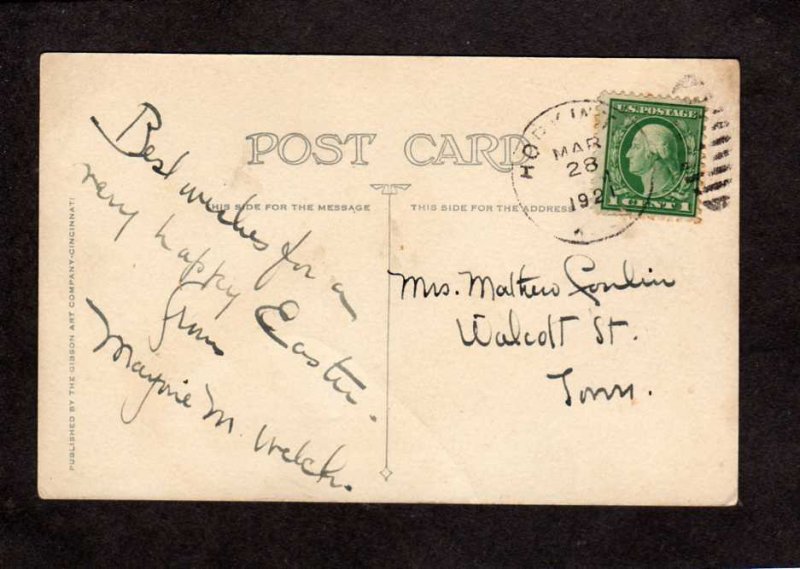 POST CARD
THIS SIDE FOR THE MESSAGE
THIS SIDE FOR THE ADDRESS
U.S. POSTAGE
1 CENT 1
MAR
28
1921
Best wishes for a
very happy Easter.
From
Marjorie M. Welch.
Mrs. Mathew
Walcott St.
Town.
PUBLISHED BY THE GIBSON ART COMPANY-CINCINNATI